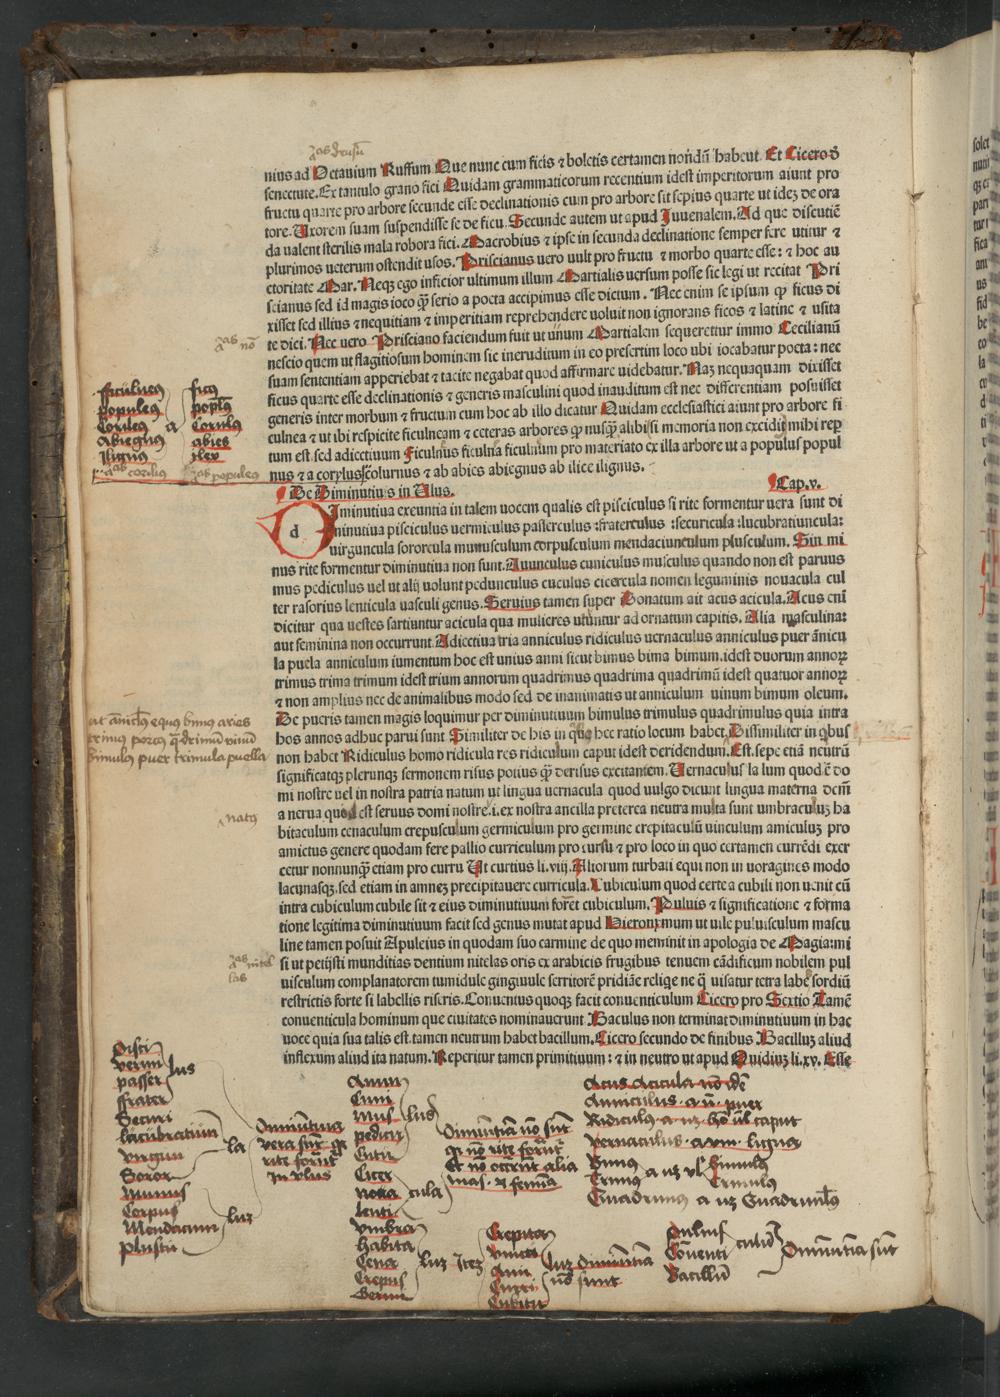 nius ad Octauium Ruffum Que nunc cum ficis ⁊ boletis certamen nondū habent. Et Cicero d̄
senectute. Ex tantulo grano fici Quidam grammaticorum recentium idest imperitorum aiunt pro
fructu quarte pro arbore secunde esse declinationis cum pro arbore sit sepius quarte ut idez de ora
tore. Uxorem suam suspendisse se de ficu. Secunde autem ut apud Juuenalem. Ad que discutiē
da ualent sterilis mala robora fici. Macrobius ⁊ ipse in secunda declinatione semper fere utitur ⁊
plurimos ueterum ostendit usos. Priscianus uero uult pro fructu ⁊ morbo quarte esse: ⁊ hoc au
ctoritate Mar. Neqz ego inficior ultimum illum Martialis uersum posse sic legi ut recitat Pri
scianus sed id magis ioco q̄ȝ serio a poeta accipimus esse dictum. Nec enim se ipsum qp ficus di
xisset sed illius ⁊ nequitiam ⁊ imperitiam reprehendere uoluit non ignorans ficos ⁊ latine ⁊ usita
te dici. Nec uero Prisciano faciendum fuit ut unum Martialem sequerettur immo Cecilianū
nescio quem ut flagitiosum hominem sic ineruditum in eo presertim loco ubi iocabatur poeta: nec
suam sententiam apperiebat ⁊ tacite negabat quod affirmare uidebatur. Naz nequaquam dixisset
ficus quarte esse declinationis ⁊ generis masculini quod inauditum est nec differentiam posuisset
generis inter morbum ⁊ fructum cum hoc ab illo dicatur Quidam ecclesiastici aiunt pro arbore fi
culnea ⁊ ut ibi respicite ficulneam ⁊ ceteras arbores qp nusq̄ȝ alibi si memoria non excidit mihi rep
tum est sed adiectiuum Ficulnus ficulna ficulnum pro materiato ex illa arbore ut a populus popul
nus ⁊ a corylus colurnus ⁊ ab abies abiegnus ab ilice ilignus.
De Diminutiuis in Ulus. Cap.v.
d Iminutiua exeuntia in talem uocem qualis est pisciculus si rite formentur uera sunt di
minutiua pisciculus uermiculus passerculus :fraterculus :securicula :lucubratiuncula:
uirguncula sororcula munusculum corpusculum mendaciunculum plusculum. Sin mi
nus rite formentur diminutiua non sunt. Auunculus cuniculus musculus quando non est paruus
mus pediculus uel ut alij uolunt pedunculus cuculus cicercula nomen leguminis nouacula cul
ter rasorius lenticula uasculi genus. Seruius tamen super Donatum ait acus acicula. Acus eni
dicitur qua uestes sartiuntur acicula qua mulieres utuntur ad ornatum capitis. Alia masculina:
aut feminina non occurrunt. Adiectiua tria anniculus ridiculus uernaculus anniculus puer ānicu
la puela anniculum iumentum hoc est unius anni sicut bimus bima bimum. idest duorum annoꝝ
trimus trima trimum idest trium annorum quadrimus quadrima quadrimū idest quatuor annoꝝ
⁊ non amplius nec de animalibus modo sed de inanimatis ut anniculum uinum bimum oleum.
De pueris tamen magis loquimur per diminutiuum bimulus trimulus quadrimulus quia intra
hos annos adhuc parui sunt Similiter de his in quibus hec ratio locum habet. Dissimiliter in q̄bus
non habet Ridiculus homo ridicula res ridiculum caput idest deridendum. Est. sepe etiā neutrū
significatqz plerunqz sermonem risus potius q̄ȝ derisus excitantem. Uernaculus la lum quod ē do
mi nostre uel in nostra patria natum ut lingua uernacula quod uulgo dicunt lingua materna dem̄
a nerua quod est seruus domi nostre. i. ex nostra ancilla preterea neutra multa sunt umbraculuȝ ha
bitaculum cenaculum crepusculum germiculum pro germine crepitaculū uinculum amiculuȝ pro
amictus genere quodam fere pallio curriculum pro cursu ⁊ pro loco in quo certamen currēdi exer
cetur nonnunq̄ȝ etiam pro curru Ut curtius li. viij. Aliorum turbati equi non in uoragines modo
lacunasqȝ. sed etiam in amneȝ precipitauere curricula. Cubiculum quod certe a cubili non uenit cū
intra cubiculum cubile sit ⁊ eius diminutiuum foret cubiculum. Puluis ⁊ significatione ⁊ forma
tione legitima diminutiuum facit sed genus mutat apud Hieronymum ut uile puluisculum mascu
line tamen posuit Apuleius in quodam suo carmine de quo meminit in apologia de Magia: mi
si ut petijsti munditias dentium nitelas oris ex arabicis frugibus tenuem cādificum nobilem pul
uisculum complanatorem tumidule gingiuule serritorē pridiāe reliqe ne q̄ uisatur tetra labe sordiū
restrictis forte si labellis riseris. Conuentus quoqȝ facit conuenticulum Cicero pro Sextio Tamē
conuenticula hominum que ciuitates nominauerunt Baculus non terminat diminutiuum in hac
uoce quia sua talis est. tamen neutrum habet bacillum. Cicero secundo de finibus Bacilluȝ aliud
inflexum aliud ita natum. Reperitur tamen primitiuum: ⁊ in neutro ut apud Ouidiuȝ li. xv. Esse
ficulneus ficus
populeus poplus
Corileus a Corulus
abiegnus abies
Ilignus ylex
at ānicl̄us equus bimus aries
trimus porcus
bimulus puer trimula puella
natus
Pisci
vermi lus
passer
frater
Securi
lucubratiun
virgun la
Soror
Munus
Corpus
Mendaciun luȝ
Pluscu
diminutiua
vera sunt qȝ
rite form̄t
in vlus
Auun
Cuni
Mus lus
pedicu
Cucu
Cicer
noua cula
lenti
vmbra
habita
Cena luȝ
Crepus
Germi
diminutiua nō sūt
qȝ nō rite form̄t
Et nō occurrūt alia
mas. ⁊ feminina
Crepita
vincu
Ami
Curri
Cubicu
luȝ diminutiua
nō sunt
Acus Acicula nō idē
Anniculus a um puer
Ridiculus a uȝ hō ul̄ caput
vernaculus a um lingua
Bimus a uȝ ul̄ bimulus
Trimus trimulus
Quadrimus a uȝ Quadrimulus
Puluis
Conuenti culū
Bacillū
Diminutiua sunt